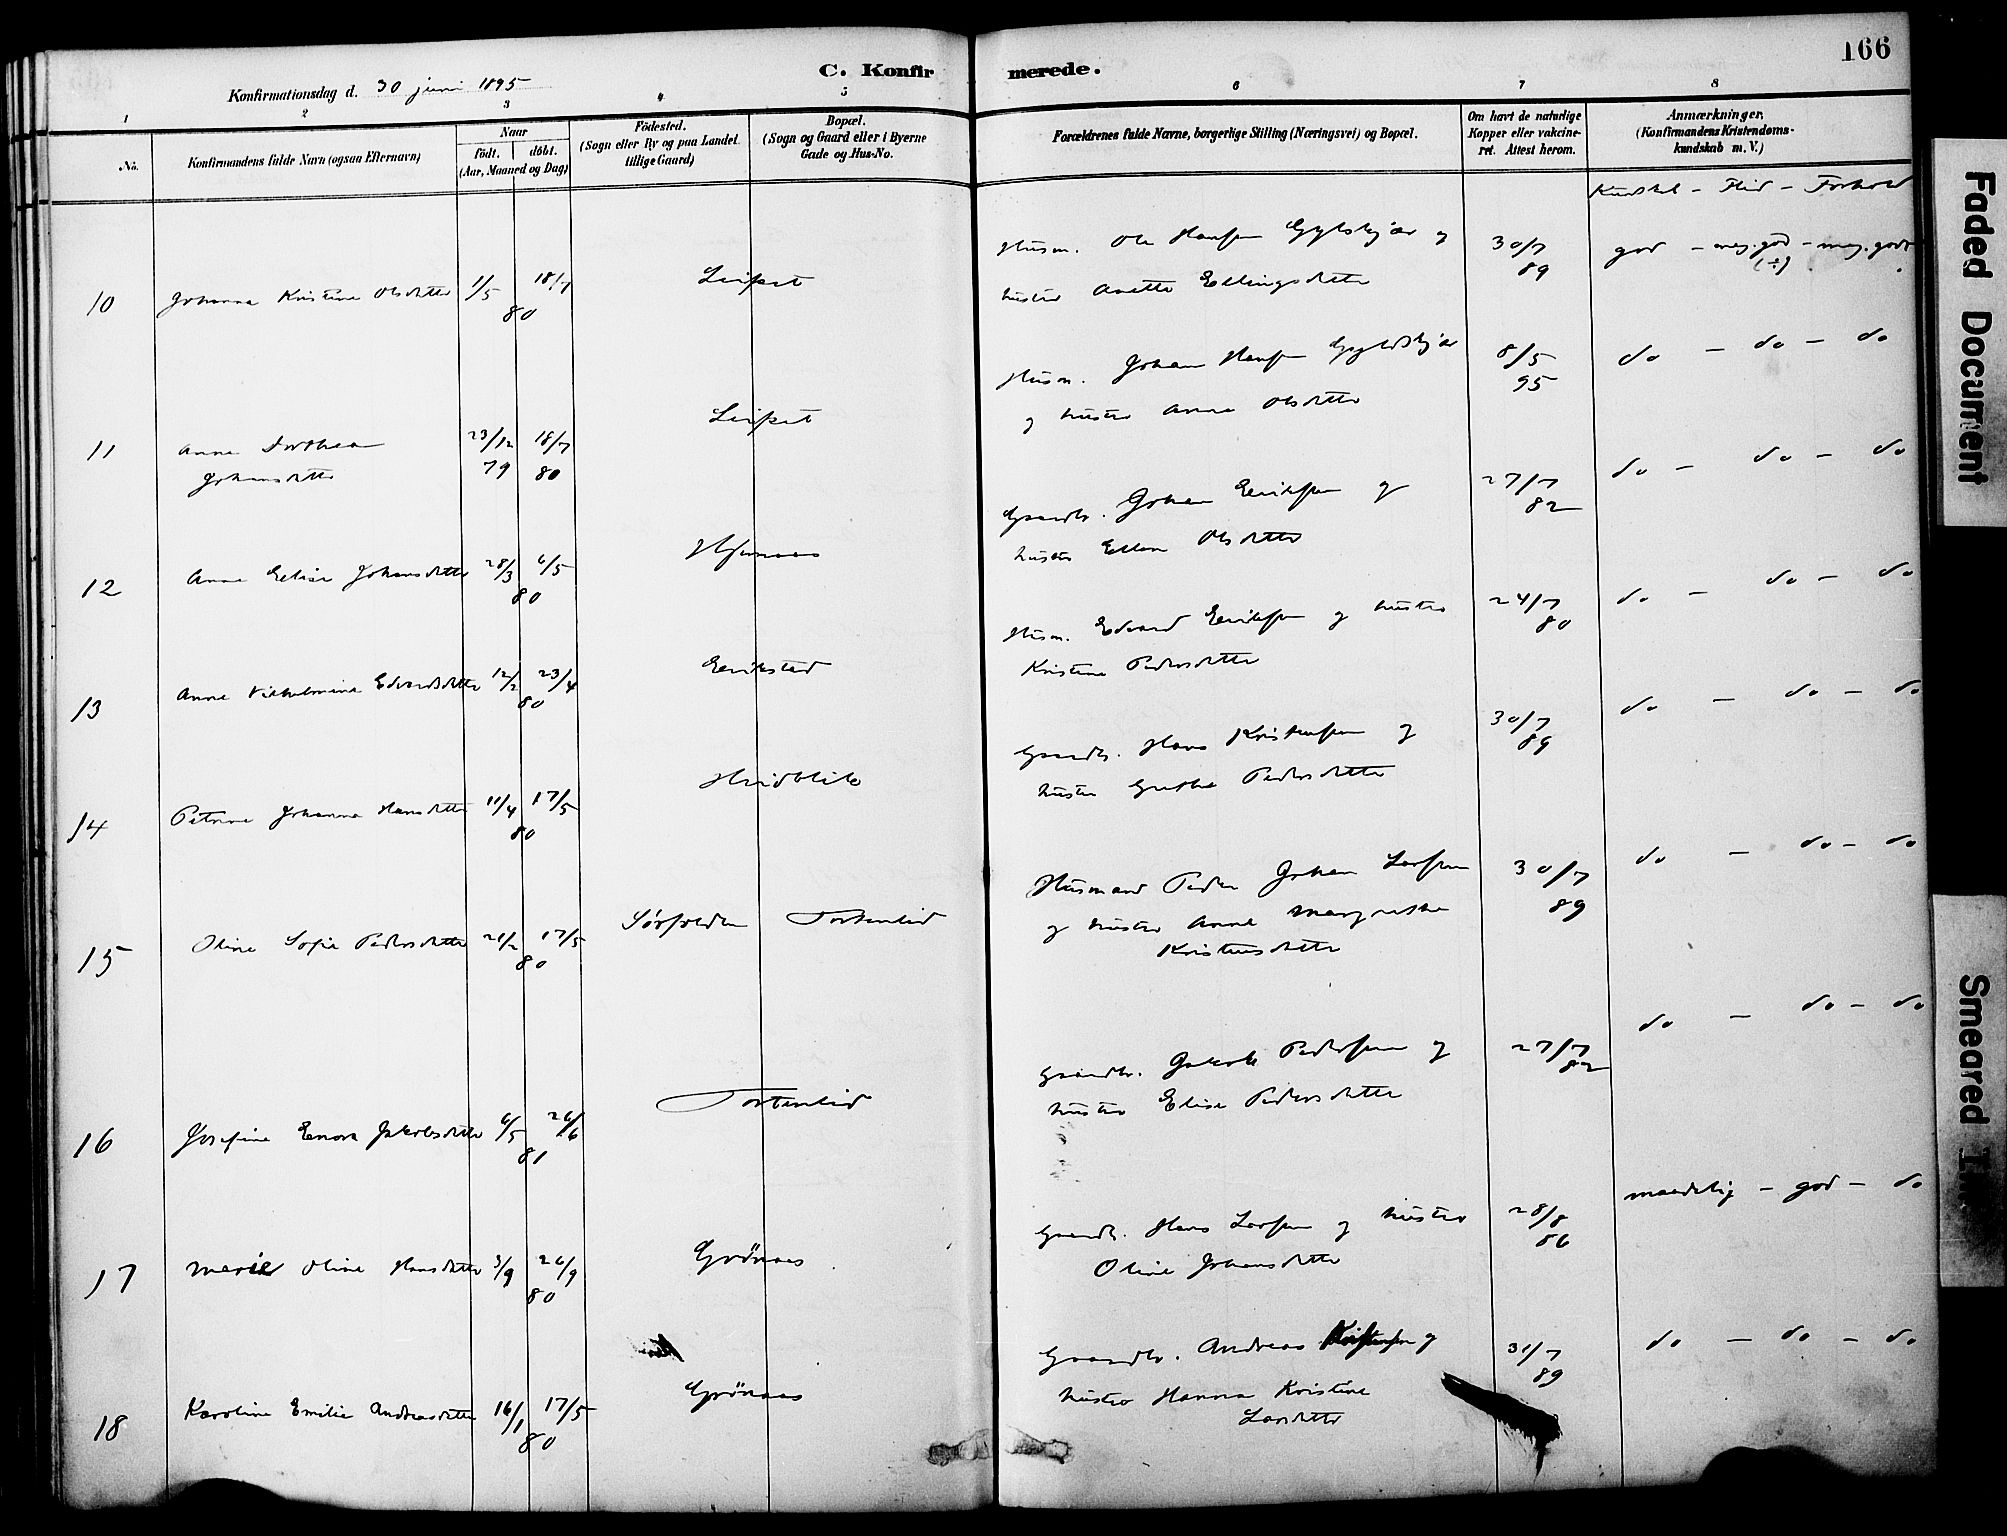 166
C. Konfir merede.
Konfirmationsdag d. 30 juni 1895
1 2 3 4 5 6 7 8
No.
Konfirmandens fulde Navn (ogsaa Efternavn)
Naar
födt. döbt.
(Aar, Maaned og Dag)
Födested.
(Sogn eller By og paa Landet tillige Gaard)
Bopæl.
(Sogn og Gaard eller i Byerne Gade og Hus-No.
Forældrenes fulde Navne, borgerlige Stilling (Næringsvei) og Bopæl.
Om havt de naturlige Kopper eller vakcineret. Attest herom.
Anmærkninger,
(Konfirmandens Kristendomskundskab m. V.)
Kundskab - Flid - Forhold
10 Johanna Kristine Olsdatter 1/5 18/7 80 Leifset
Husm. Ole Hansen Gyltskjær og 30/7 89 god - meg. god - meg. godt
hustru Anette Ellingsdatter (÷)
11 Anne Dorthea 23/12 79 18/7 80 Leifset
Johansdatter
Husm. Johan Hansen Gyltskjær 8/5 95 do - do - do
og hustru Anne Olsdatter
12 Anne Elise Johansdatter 28/3 6/5 80
Gaardb. Johan Eriksen og 27/7 82 do - do - do
hustru Ellen Olsdatter
13 Anne Vilhelmine Edvardsdatter 12/2 23/4 80 Erikstad
Husm. Edvard Eriksen og hustru 24/7 80 do - do - do
Kristine Pedersdatter
14 Petrine Johanna Hansdatter 11/4 17/5 80 Hvidblik
Gaardb. Hans Kristensen og 30/7 89 do - do - do
hustru Grethe Pedersdatter
15 Oline Sofie Pedersdatter 21/2 17/5 80 Sørfolden Tortenlid
Husmand Peder Johan Larsen 30/7 89 do - do - do
og hustru Anne Margrethe
Kristensdatter
16 Josefine Enora Jakobsdatter 6/5 26/6 81 Tortenlid
Gaardb. Jakob Pedersen og 27/7 82 do - do - do
hustru Elise Pedersdatter
17 Marie Oline Hansdatter 3/9 26/9 80 Grönaas
Gaardb. Hans Larsen og hustru 28/8 86 maadelig - god - do
Oline Johansdatter
18 Karoline Emilie Andreasdatter 16/1 17/5 80 Grönaas
Gaardb. Andreas Kristensen og 31/7 89 do - do - do
hustru Hanna Kristine
Larsdatter
Faded Document
Smeared Ink